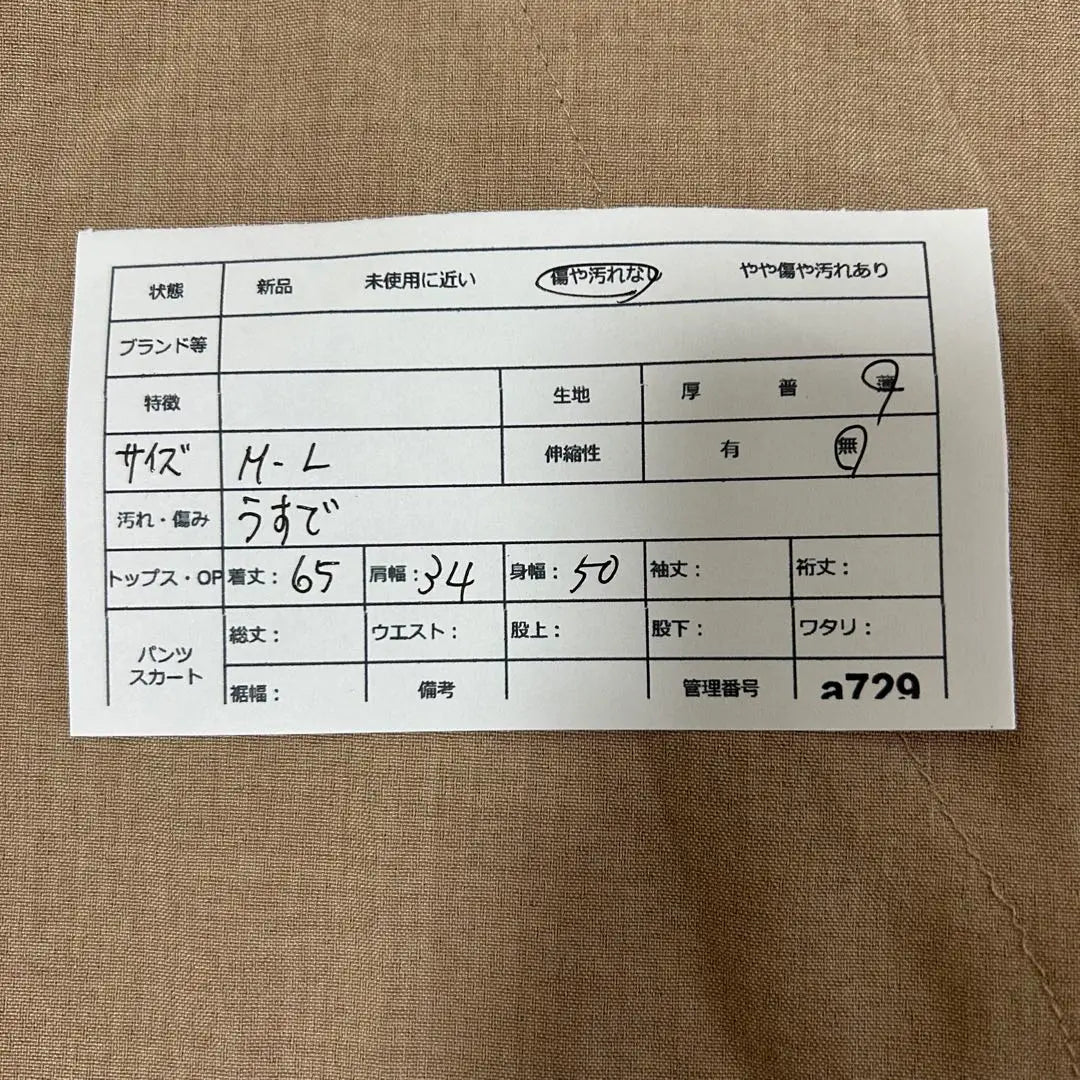 状態 新品 未使用に近い 傷や汚れなし やや傷や汚れあり
ブランド等
特徴 生地 厚 普 薄
サイズ M-L 伸縮性 有 無
汚れ・傷み うすで
トップス・OP 着丈: 65 肩幅: 34 身幅: 50 袖丈: 裄丈:
パンツ スカート 総丈: ウエスト: 股上: 股下: ワタリ:
裾幅: 備考 管理番号 a729